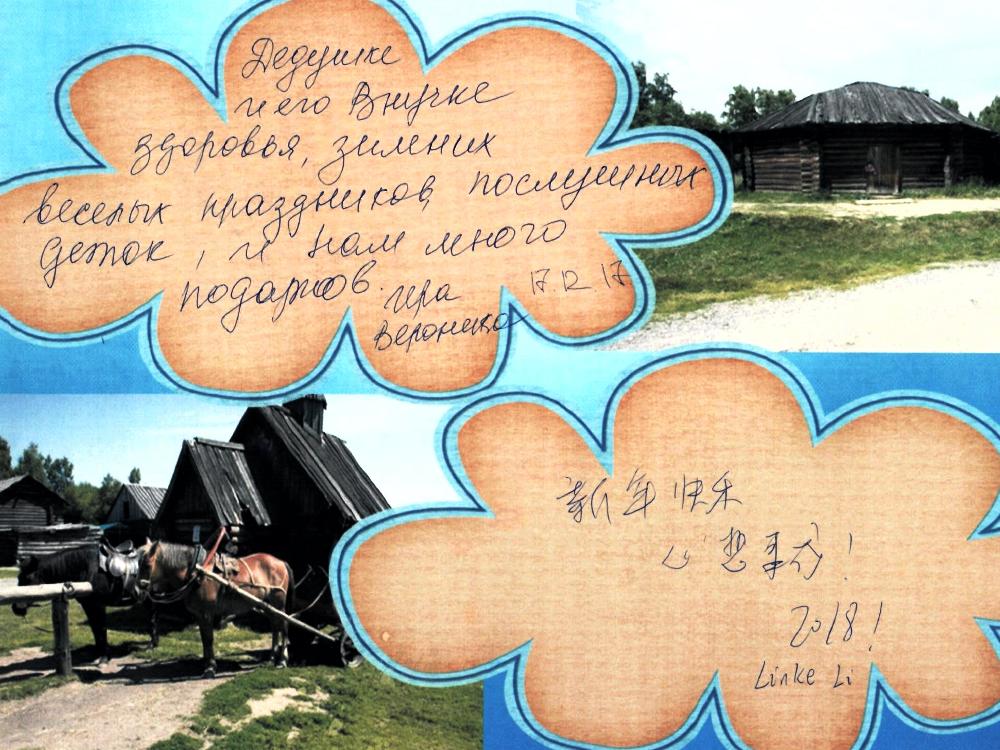 Дедушке
и его Внучке
здоровья, зимних
веселых праздников, послушных
деток, и нам много
подарков.
Ира
Вероника
17.12.17
新年快乐
心想事成!
2018!
Linke Li